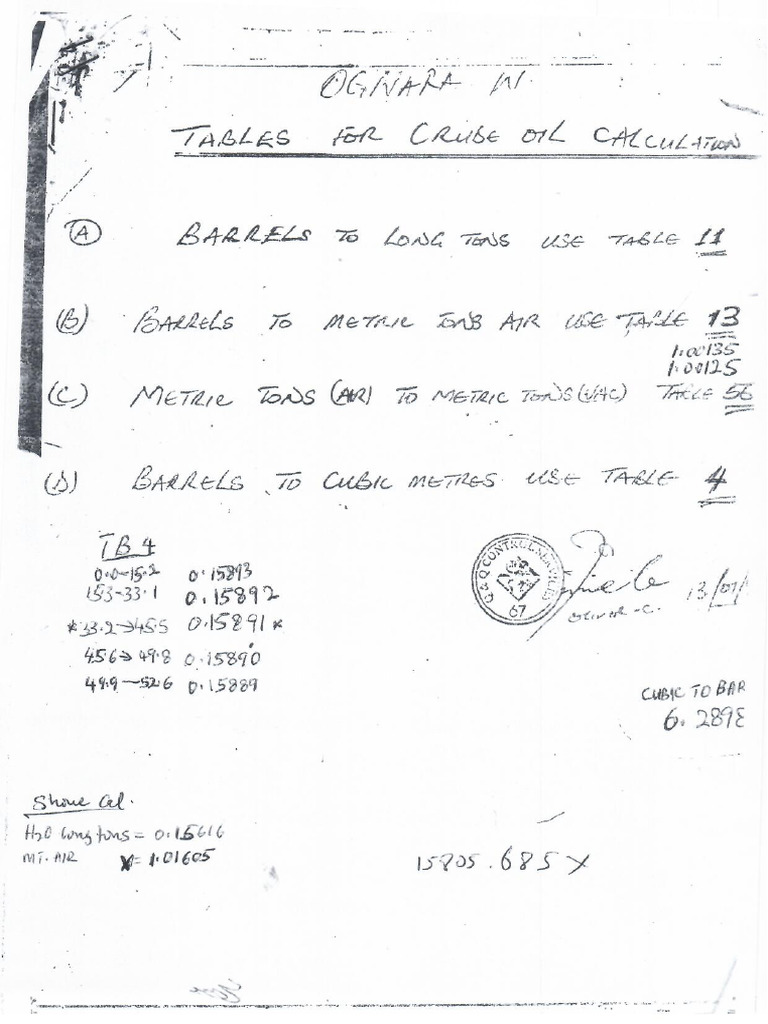 OGHARA W
TABLES FOR CRUDE OIL CALCULATION
(A) BARRELS TO LONG TONS USE TABLE 11
(B) BARRELS TO METRIC TONS AIR USE TABLE 13
1.00135
1.00125
(C) METRIC TONS (AIR) TO METRIC TONS (VAC) TABLE 56
(D) BARRELS TO CUBIC METRES USE TABLE 4
TB 4
0.0-15.2 0.15893
15.3-33.1 0.15892
*33.2→45.5 0.15891*
45.6→49.8 0.15890
49.9-52.6 0.15889
Q & Q CONTROL SERVICES
67
13/01/
CUBIC TO BAR
6.2898
Shore Cal.
H2O long tons = 0.15616
MT. AIR X= 1.01605
15805.685 X